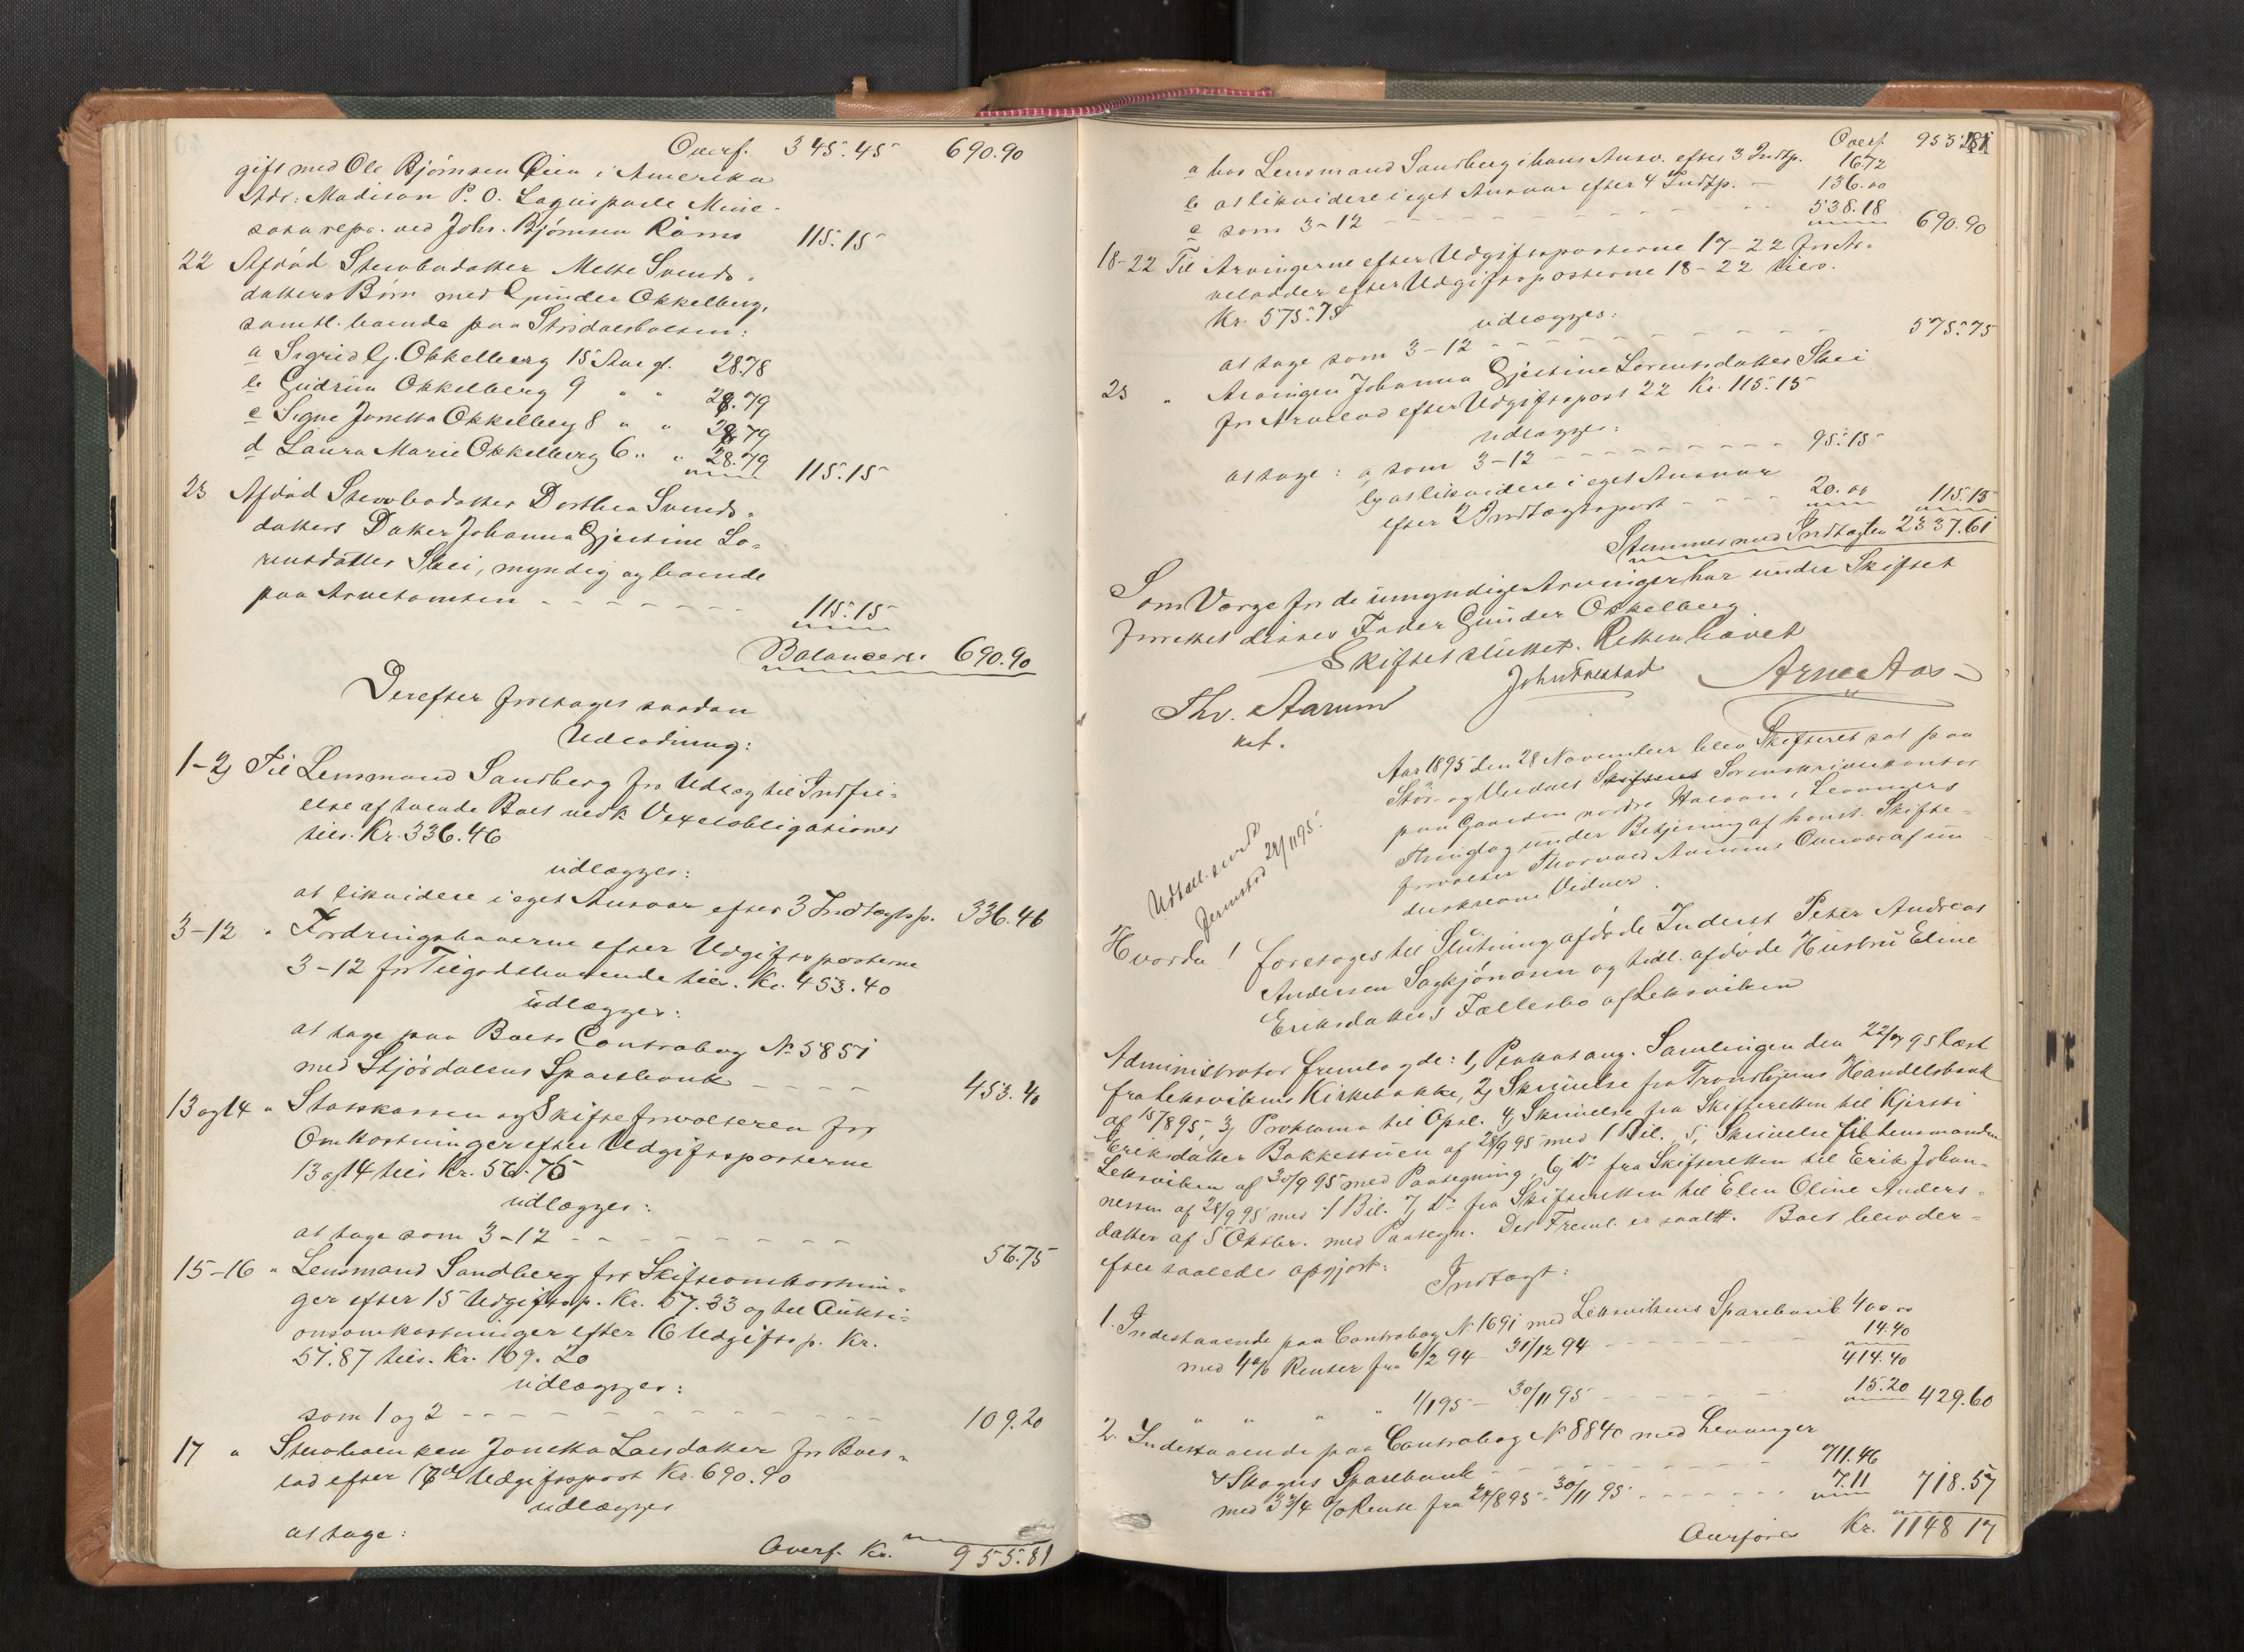 Overf. 345.45 690.90
gift med Ole Bjørnsen Øien i Amerika
Adr: Madison P. O. Laquisparle Mine-
sota repr. ved Johs. Bjørnsen Rømo 115.15
22 Afdød Stervbodatter Mette Svends-
datters Børn med Gunder Okkelberg,
samtl. boende paa Stridalsvolden:
a Sigrid G. Okkelberg 15 Aar gl. 28.78
b Gudrun Okkelberg 9 " " 28.79
c Signe Jonetta Okkelberg 8 " " 28.79
d Laura Marie Okkelberg 6 " " 28.79 115.15
23 Afdød Stervbodatter Dorthea Svends-
datters Datter Johanna Gjertine Lo-
rentsdatter Skei, myndig og boende
paa Arvetomten 115.15
Balancerer 690.90
Derefter foretoges saadan
Udlodning:
1-2, Til Lensmand Sandberg for Udlæg til Indfri-
else af tvende Boet vedk Vexelobligationer
tils. Kr. 336.46
udlægges:
at likvidere i eget Ansvar efter 3 Indtægtsp. 336.46
3-12 " Fordringshaverne efter Udgiftsposterne
3-12 for Tilgodehavende tils. Kr. 453.40
udlægges:
at tage paa Boets Contrabog No 5851
med Stjørdalens Sparebank 453.40
13 og 14 " Statskassen og Skifteforvalteren for
Omkostninger efter Udgiftsposterne
13 og 14 tils Kr. 56.75
udlægges:
at tage som 3-12 56.75
15-16 " Lensmand Sandberg for Skifteomkostnin-
ger efter 15 Udgiftsp. Kr. 57.33 og til Aukti-
onsomkostninger efter 16 Udgiftsp. Kr.
51.87 tils. Kr. 109.20
udlægges:
som 1 og 2 109.20
17 " Stervboenken Jonetta Larsdatter for Boes-
lod efter 17de Udgiftspost Kr. 690.90
udlægges
at tage:
Overf. Kr. 955.81
Overf 955.81
a hos Lensmand Sandberg i hans Ansv. efter 3 Indtp. 16.72
b at likvidere i eget Ansvar efter 4 Indtp. 136.00
c som 3-12 538.18 690.90
18-22 Til Arvingerne efter Udgiftsposterne 17-22 for Ar-
velodder efter Udgiftsposterne 18-22 tils.
Kr. 575.75
udlægges:
at tage som 3-12 575.75
23 " Arvingen Johanna Gjertine Lorentsdatter Skei
for Arvelod efter Udgiftspost 22 Kr. 115.15
udlægges:
at tage: a, som 3-12 95.15
b, at likvidere i eget Ansvar
efter 2 Indtægtspost 20.00 115.15
Stemmer med Indtægten 2337.61
Som Værge for de umyndige Arvinger har under Skiftet
forrettet disses Fader Gunder Okkelberg.
Skiftet sluttet. Retten hævet
Thv. Aarum John Arne Aas
kst.
Aar 1895 den 28 November blev Skifteret sat paa
Stør- og Værdals Skifteret Sorenskriverkontor
paa Gaarden nordre i Levangers
Thinglag under Betjening af konst. Skifte-
forvalter Thorvald Aarums Overvær af un-
derskrevne Vidner.
Udtall. sendt
28/11 95.
Hvorda! foretoges til Slutning afdøde Inderst Peter Andreas
Andersen Sagkjønåsen og tidl. afdøde Hustru Eline
Eriksdatters Fællesbo af Leksviken
Administrator fremlagde: 1, Plakat ang. Samlingen den 22/7 95 læst
fra Leksvikens Kirkebakke, 2, Skrivelse fra Trondhjems Handelsbank
af 15/8 95, 3, Proklama til Opsl. 4, Skrivelse fra Skifteretten til Kjersti
Eriksdatter Bakkestuen af 28/9 95 med 1 Bil. 5, Skrivelse til Lensmanden
Leksviken af 30/9 95 med Paategning, 6, Do fra Skifteretten til Erik Johan-
nessen af 28/9 95 med 1 Bil. 7, Do fra Skifteretten til Elen Oline Anders-
datter af 5 Oktbr. med Paategn. Det Freml. er saal#. Boet blev der-
efter saaledes opgjort:
Indtægt:
1. Indestaaende paa Contrabog No 1691 med Leksvikens Sparebank 400.00
med 4% Renter fra 6/2 94 - 31/12 94 14.40
414.40
" " " " 1/1 95 - 30/11 95 15.20 429.60
2. Indestaaende paa Contrabog No 8840 med Levanger
& Skogns Sparebank 711.46
med 3 3/4 % Rente fra 24/8 95 - 30/11 95 7.11 718.57
Overføres Kr. 1148 17